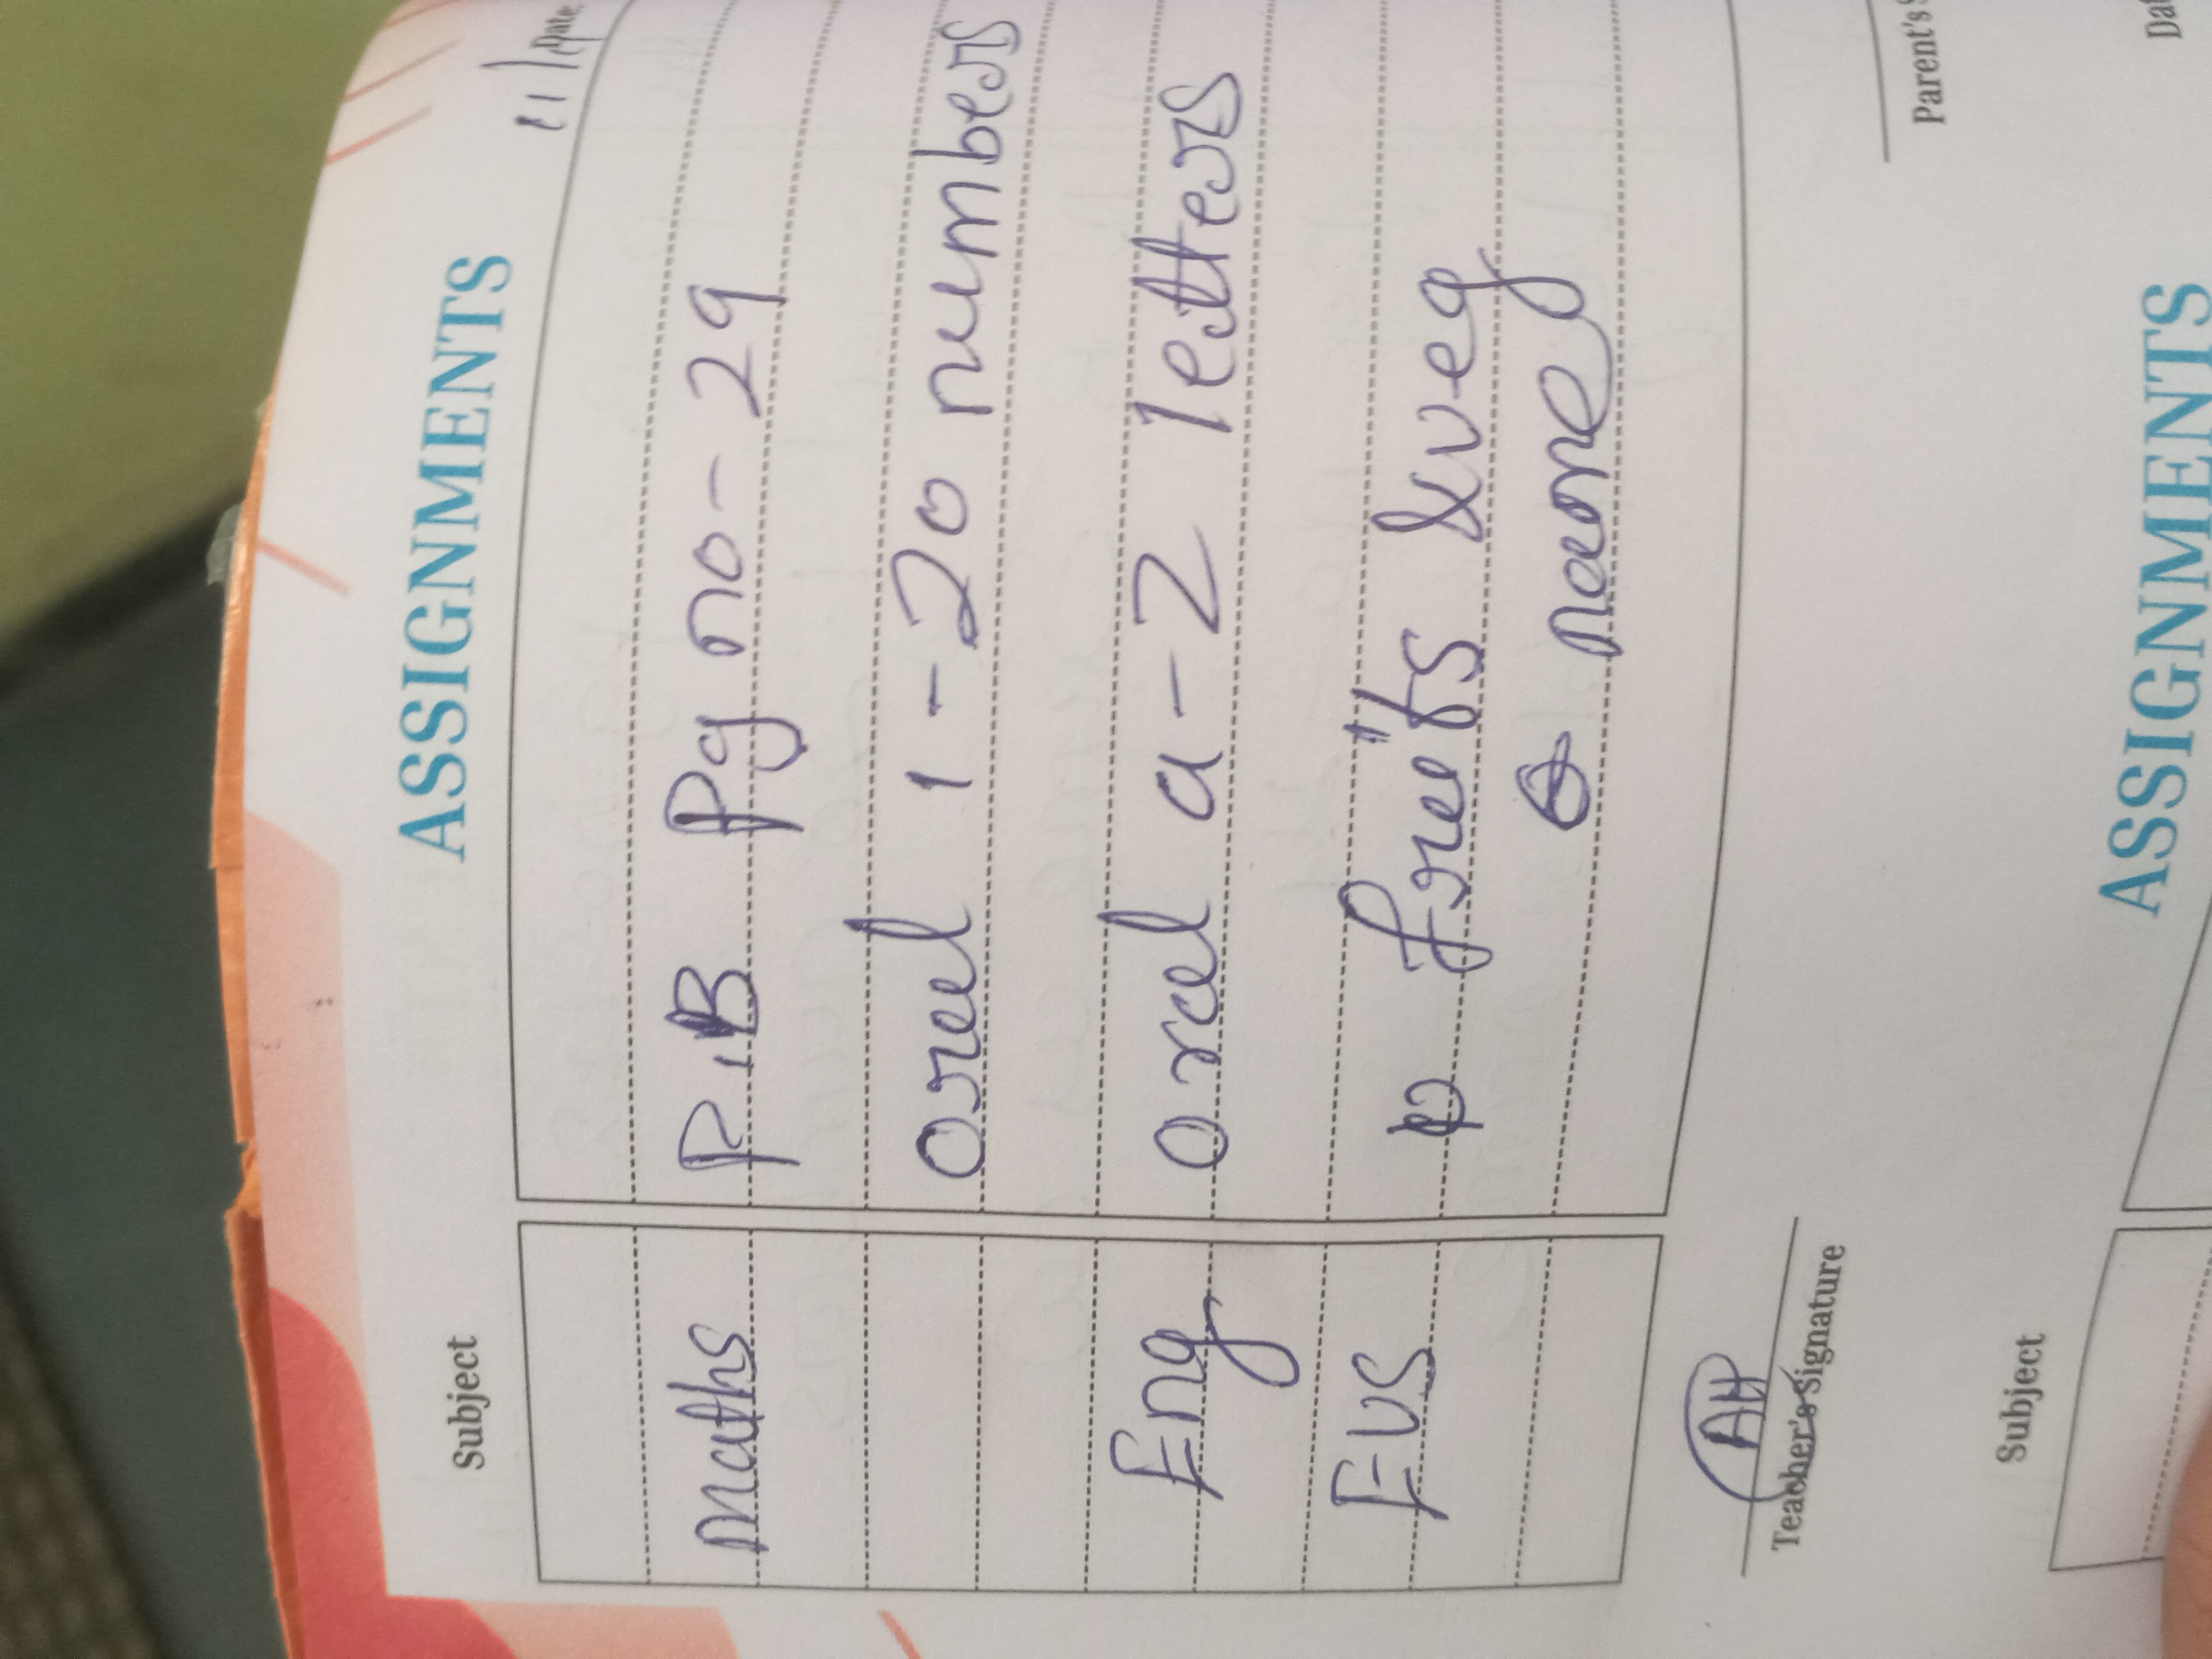 Subject ASSIGNMENTS Date
11
maths P.B Pg no - 29
oral 1 - 20 numbers
Eng oral a - z letters
EVS fruits & veg
name
AH
Teacher's Signature Parent's
Subject ASSIGNMENTS